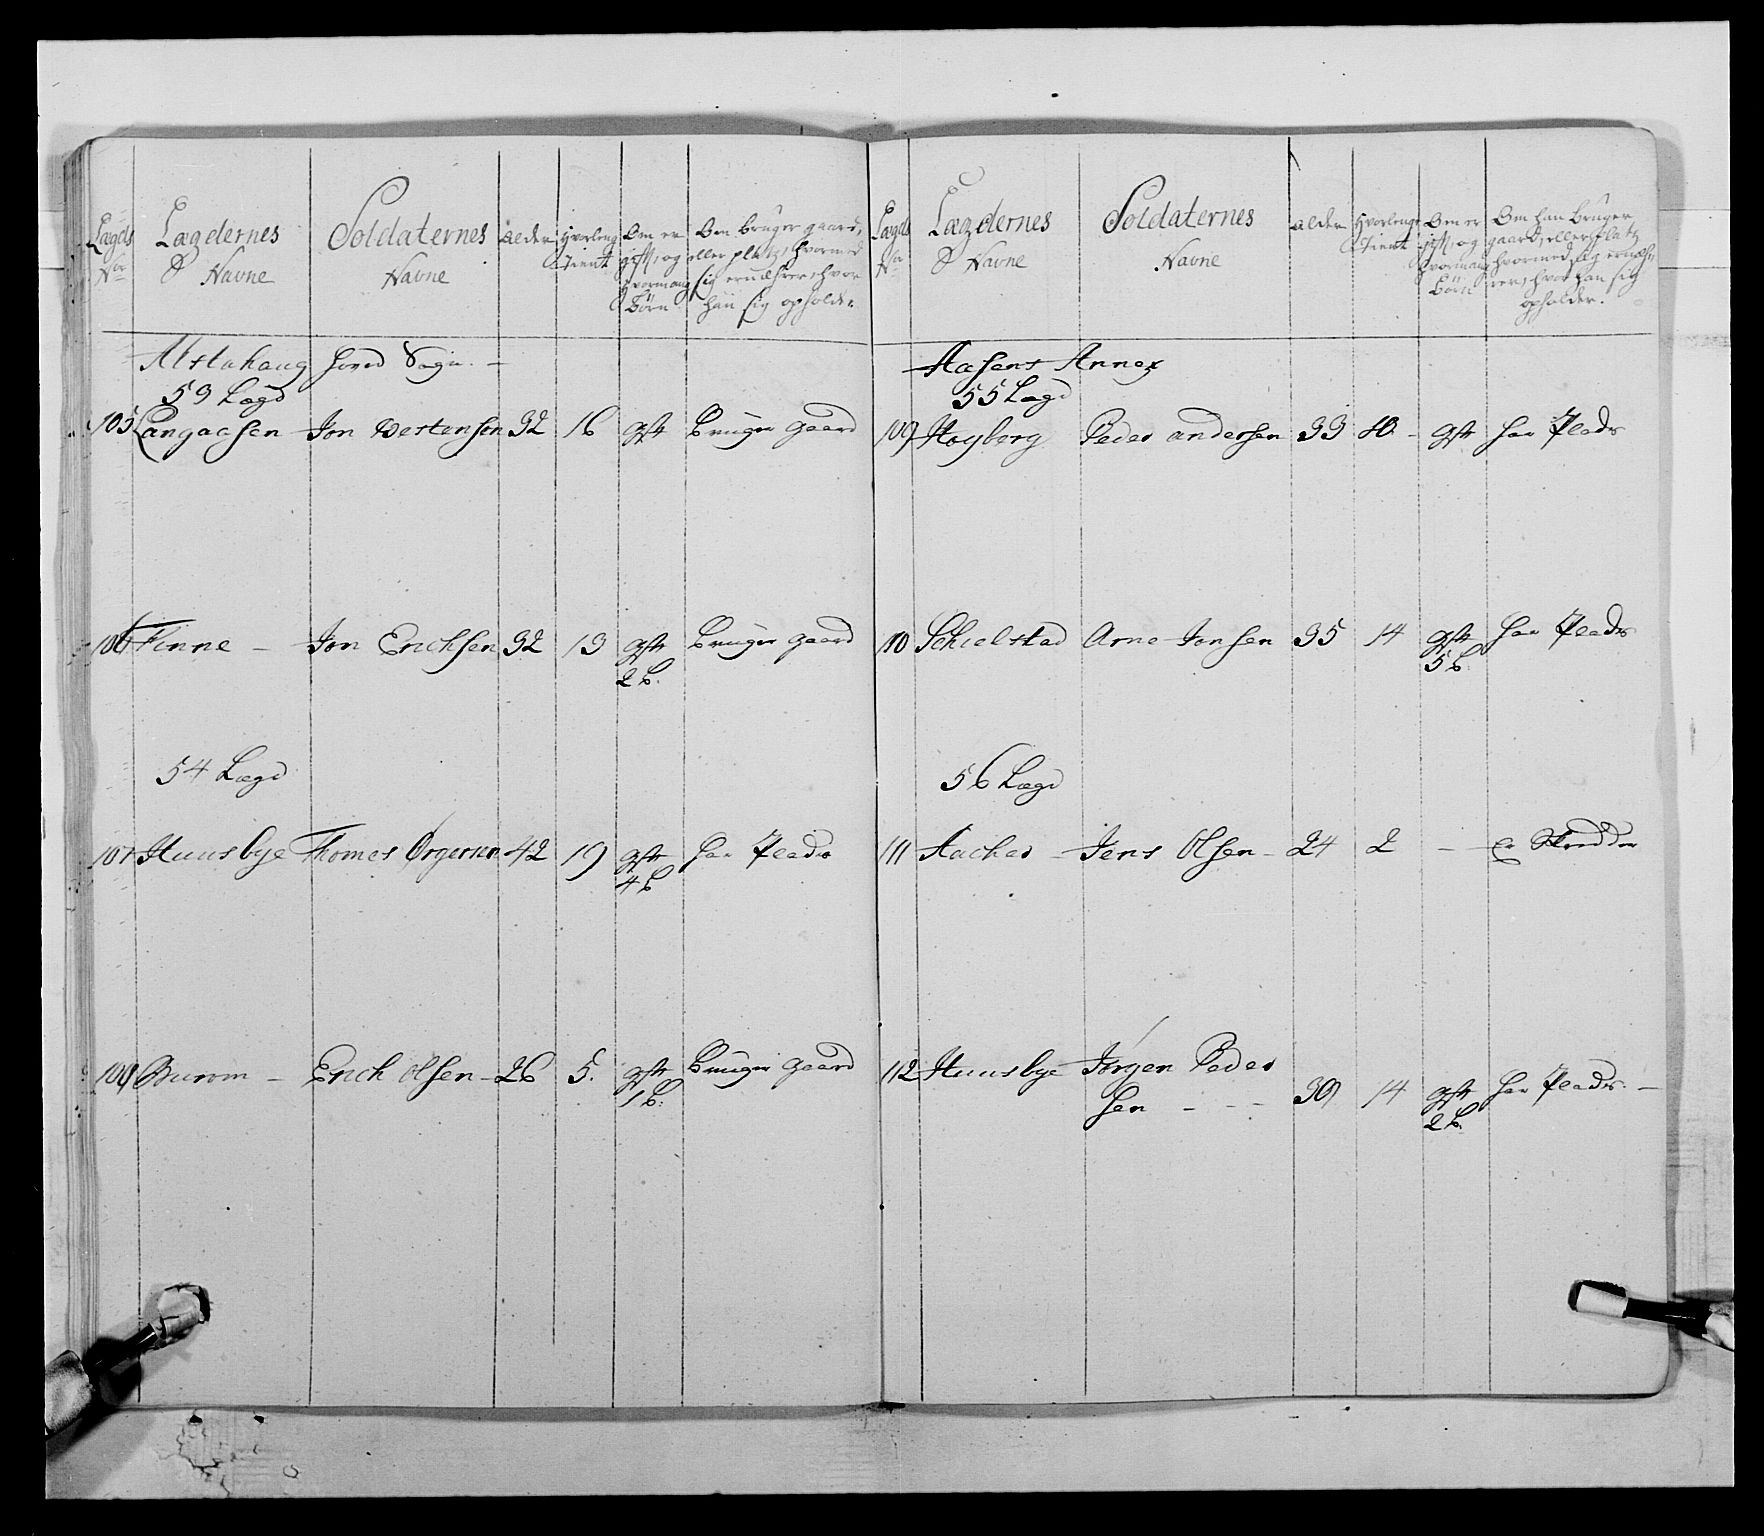 Lægds No | Lægdernes Navne | Soldaternes Navne | alder | Hvorleng Tient | Om er gift, og hvormang Børn | Om Bruger gaard, eller platz, hvormed sig ernæhrer, hvor han sig opholder
Alstahaug Hoved Sogn. -
53 Lægd
105 Langaasen Jon Vestensen 32 16 gift Bruger gaard
106 Finne - Jon Erichsen 32 13 gift Bruger gaard
2 b.
54 Lægd
107 Huusbye Thomes Ørgersen 42 19 gift har Plads
4 b
108 Burom - Erich Olsen - 26 5. gift Bruger gaard
1 b.
Lægds No | Lægdernes Navne | Soldaternes Navne | alder | Hvorlenge Tient | Om er gift, og hvormang Børn | Om han Bruger gaard, eller platz hvormed sig ernæhrer, hvor han sig opholder.
Aasens Annex
55 Lægd
109 Høyberg Peder andersen 33 10 - gift har Plads
110 Schielstad Arne Jonsen 35 14 gift har Plads
5 b
56 Lægd
111 Aacher - Jens Olsen - 24 2 - er Skredder
112 Huusbye Jørgen Peder
sen - - - 39 14 gift har Plads. -
2 b.